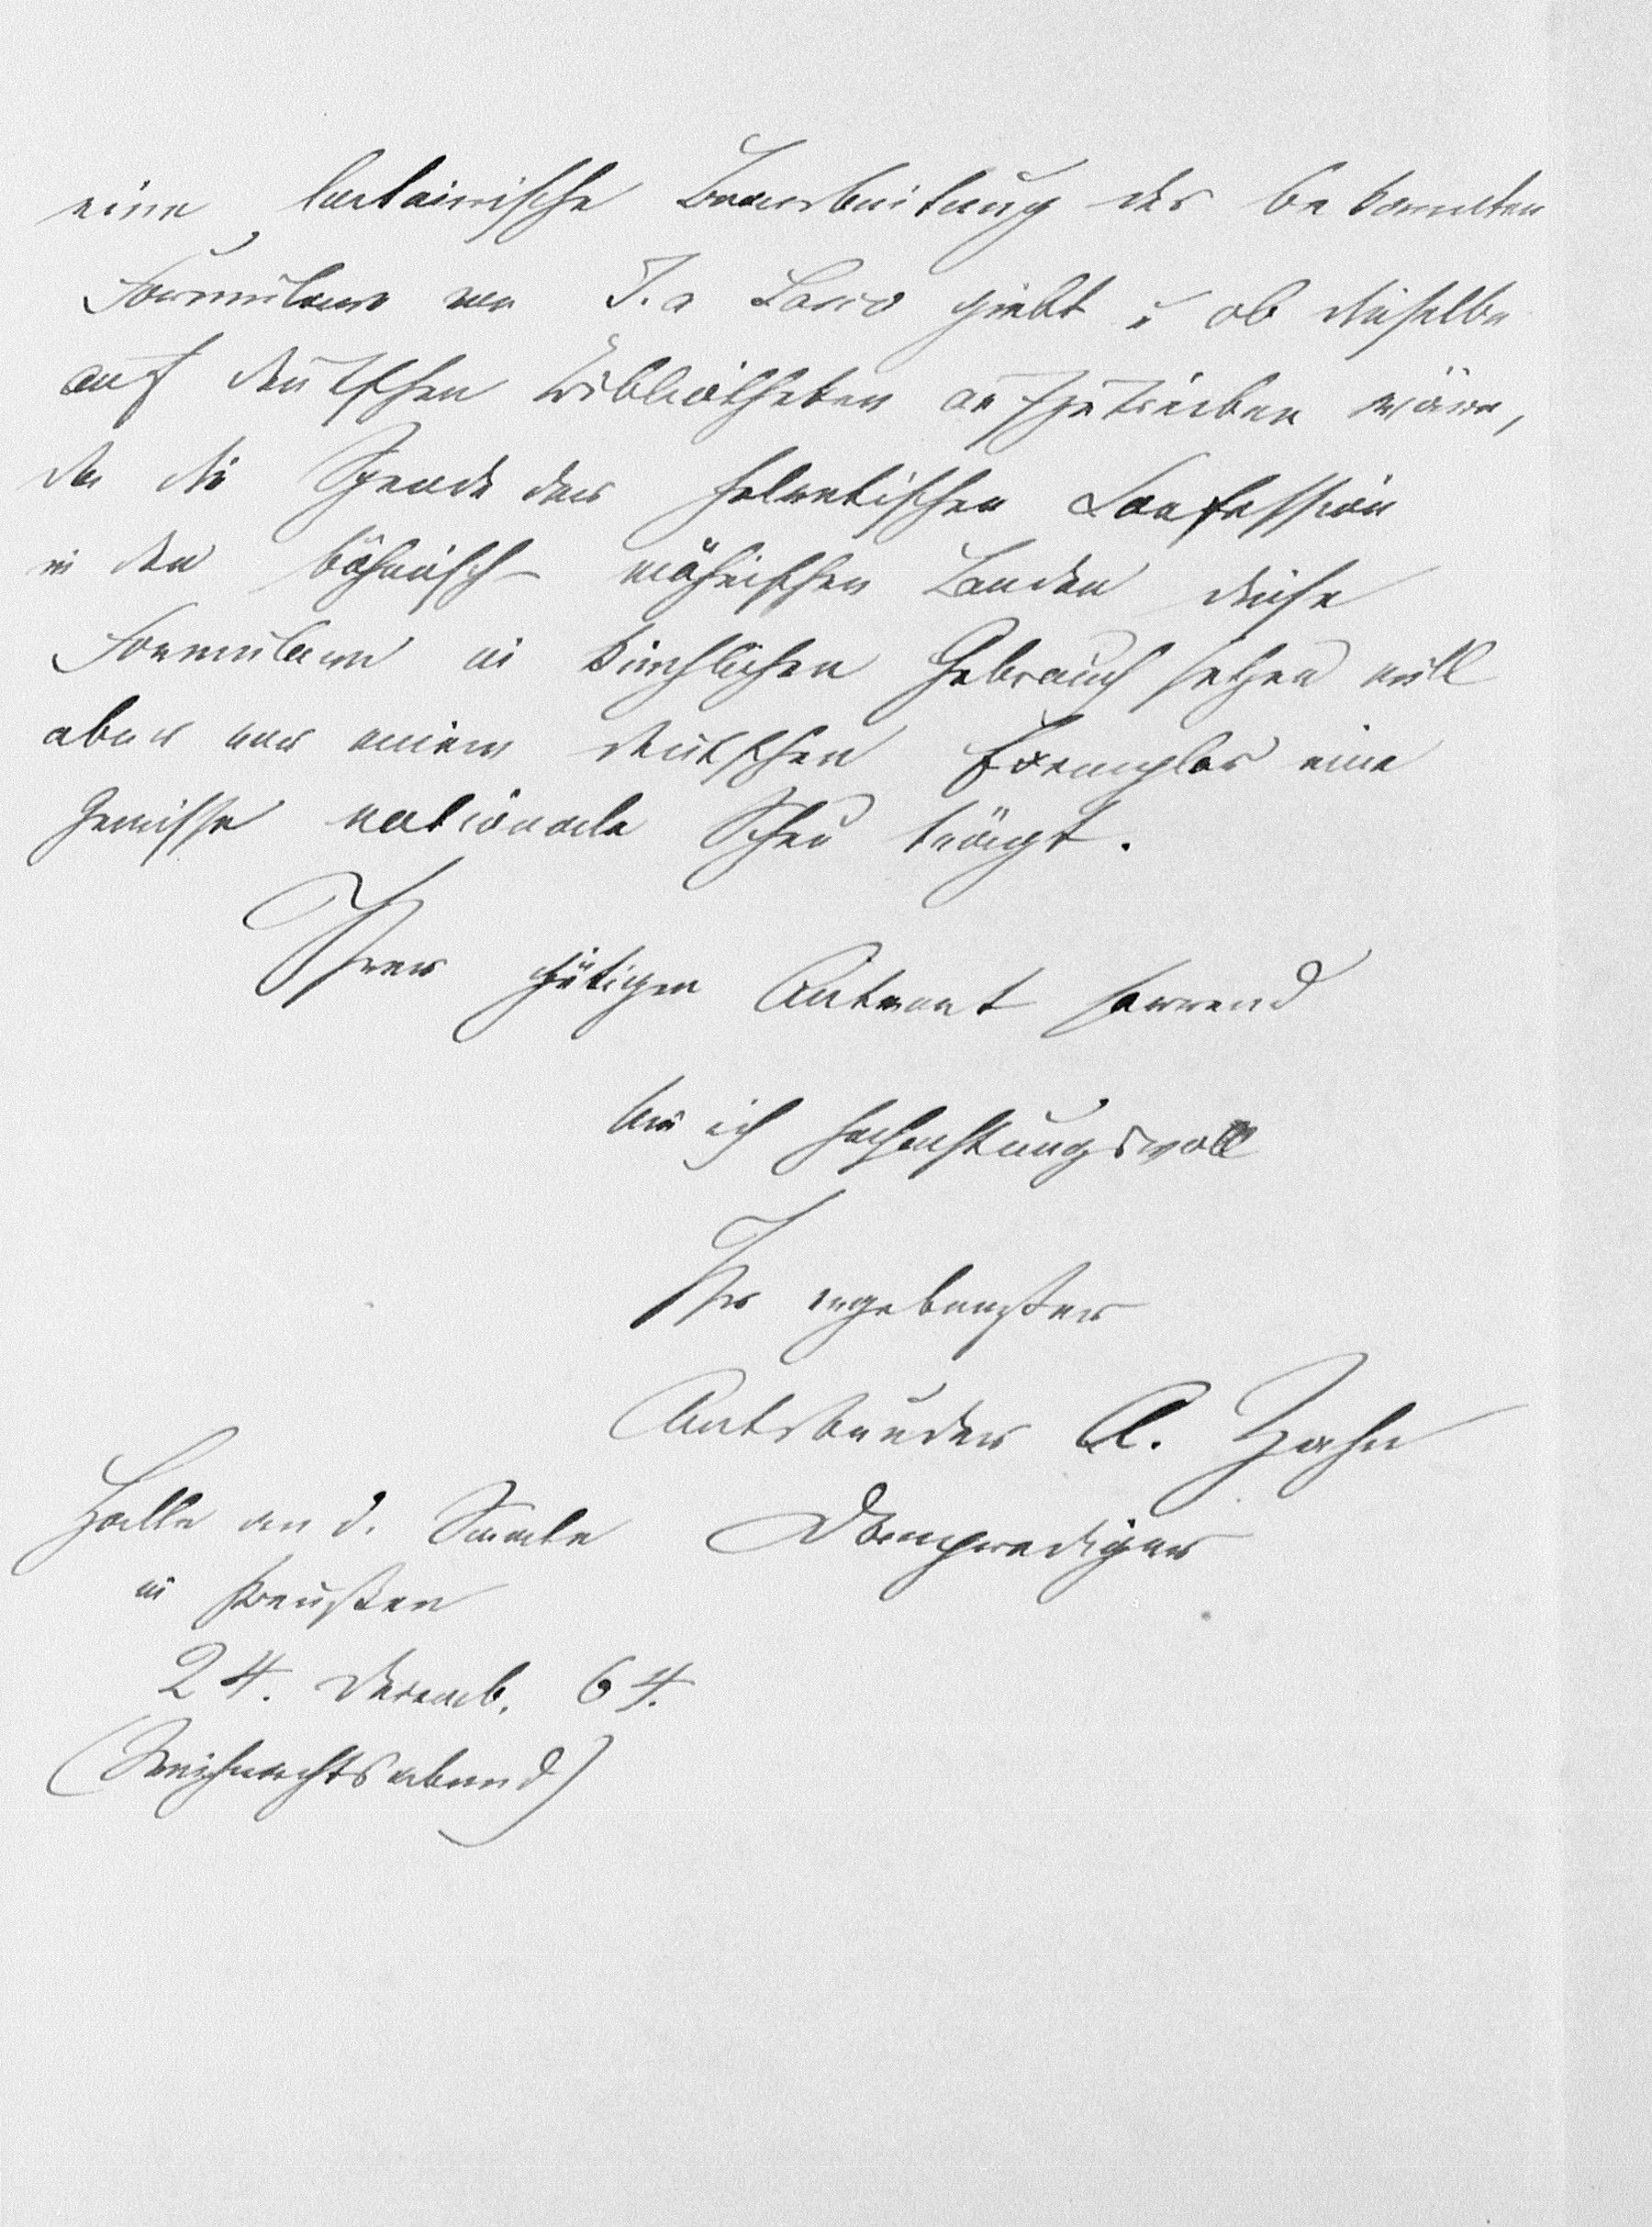 eine lateinische Bearbeitung der bekannten
Formulare von J. a Lasco giebt u ob dieselbe
auf deutschen Bibliotheken aufzutreiben wäre,
da die der helvetischen Confession
in den böhmisch- mährischen Landen diese
Formulare in kirchlichen Gebrauch setzen will
aber vor einem deutschen Exemplar eine
gewisse nationale Scheu trägt.
Ihrer gütigen Antwort harrend
bin ich hochachtungsvoll
Ihr ergebenster
Amtsbruder A. Zahn
Domprediger
Halle an d. Saale
in Preußen
24. Decemb. 64.
(Weihnachtsabend)